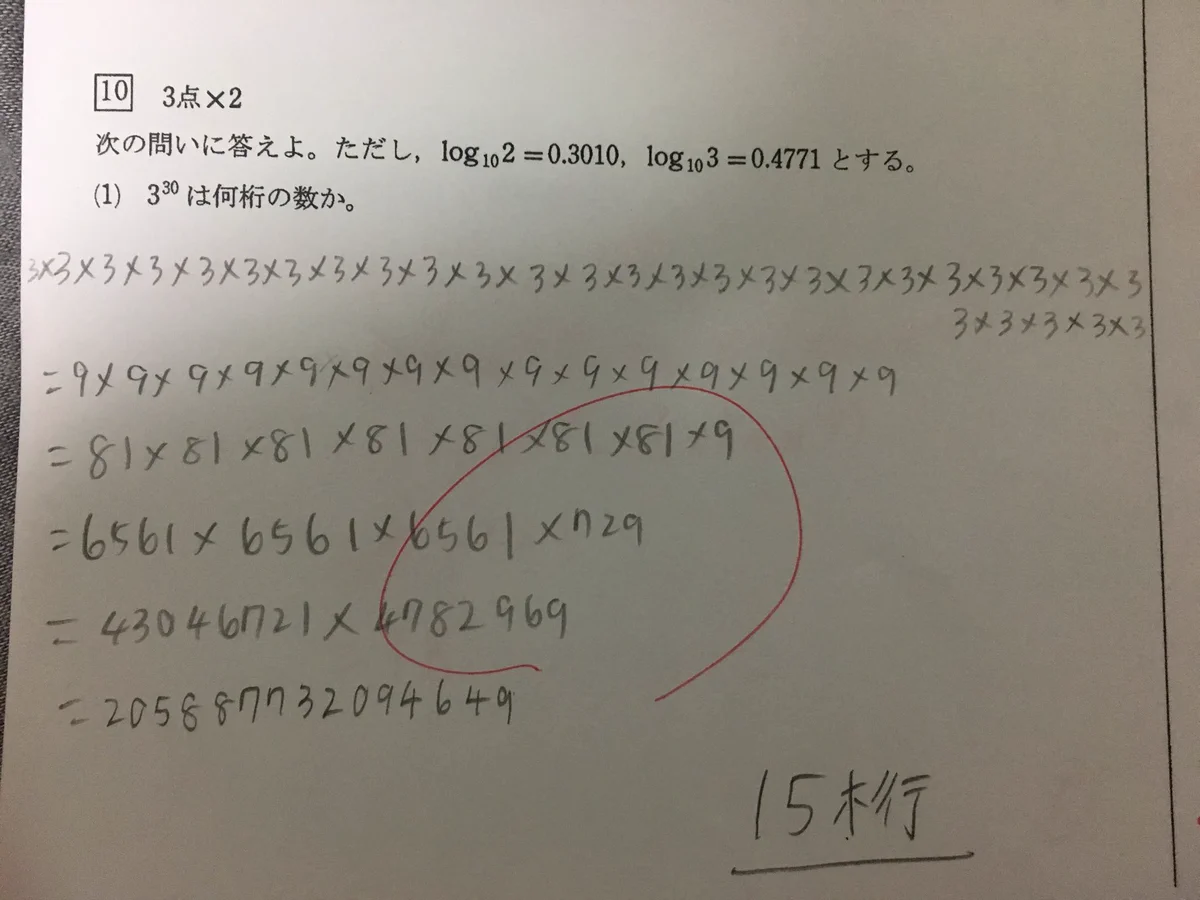 10 3点×2
次の問いに答えよ。ただし，log₁₀2＝0.3010，log₁₀3＝0.4771 とする。
(1) 3³⁰ は何桁の数か。
3×3×3×3×3×3×3×3×3×3×3×3×3×3×3×3×3×3×3×3×3×3×3×3×3
3×3×3×3×3
=9×9×9×9×9×9×9×9×9×9×9×9×9×9×9
=81×81×81×81×81×81×81×9
=6561×6561×6561×729
=43046721×4782969
=205887732094649
15桁